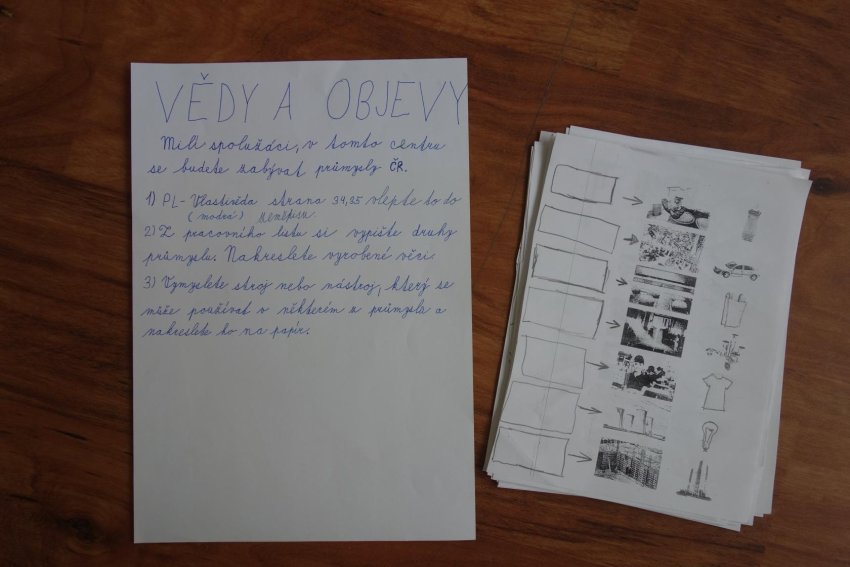 VĚDY A OBJEVY
Milí spolužáci, v tomto centru
se budete zabývat průmysly ČR.
1) PL - Vlastivěda strana 34,35 vlepte to do
(modrá)
2) Z pracovního listu si vypište druhy
průmyslu. Nakreslete vyrobené věci.
3) Vymyslete stroj nebo nástroj, který se
může používat v některém z průmyslů a
nakreslete ho na papír.